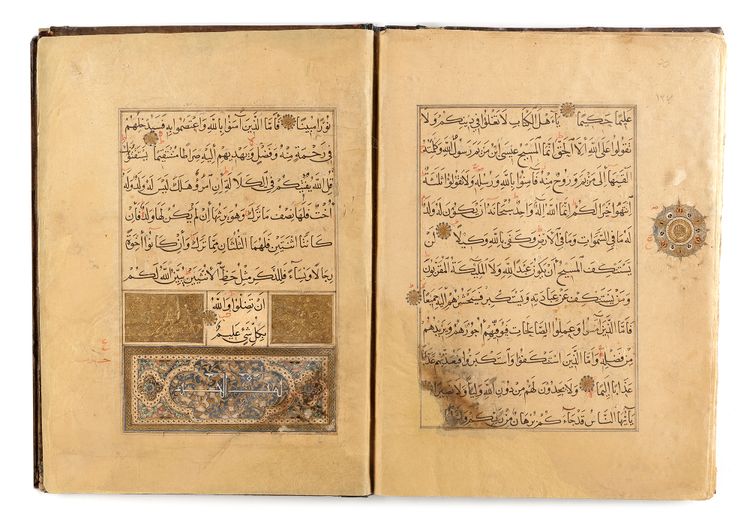 عليما حكيما ياهل الكتاب لا تغلوا في دينكم ولا
تقولوا على الله الا الحق انما المسيح عيسى ابن مريم رسول الله وكلمته
القيها الى مريم وروح منه فآمنوا بالله ورسله ولا تقولوا ثلثة
انتهوا خيرا لكم انما الله اله واحد سبحانه ان يكون له ولد
له ما في السموات وما في الارض وكفى بالله وكيلا لن
يستنكف المسيح ان يكون عبدا لله ولا الملئكة المقربون
ومن يستنكف عن عبادته ويستكبر فسيحشرهم اليه جميعا
فاما الذين آمنوا وعملوا الصالحات فيوفيهم اجورهم ويزيدهم
من فضله واما الذين استنكفوا واستكبروا فيعذبهم
عذابا اليما ولا يجدون لهم من دون الله وليا ولا نصيرا
يايها الناس قد جاءكم برهان من ربكم وانزلنا
نورا مبينا فاما الذين آمنوا بالله واعتصموا به فسيدخلهم
في رحمة منه وفضل ويهديهم اليه صراطا مستقيما يستفتونك
قل الله يفتيكم في الكلالة ان امرؤ هلك ليس له ولد وله
اخت فلها نصف ما ترك وهو يرثها ان لم يكن لها ولد فان
كانتا اثنتين فلهما الثلثان مما ترك وان كانوا اخوة
رجالا ونساء فللذكر مثل حظ الانثيين يبين الله لكم
ان تضلوا والله
بكل شيء عليم